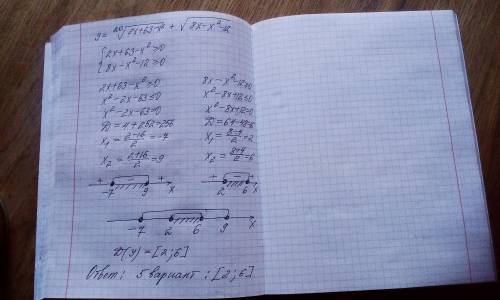 y = ²⁰√(2x+63-x²) + √(8x-x²-12)
{2x+63-x²≥0
{8x-x²-12≥0
2x+63-x²≥0
x²-2x-63≤0
x²-2x-63=0
D=4+252=256
x₁=(2-16)/2=-7
x₂=(2+16)/2=9
8x-x²-12≥0
x²-8x+12≤0
x²-8x+12=0
D=64-48=16
x₁=(8-4)/2=2
x₂=(8+4)/2=6
+ - +
-7 9 x
+ - +
2 6 x
-7 2 6 9 x
D(y)=[2;6]
Ответ: 5 вариант: [2;6]